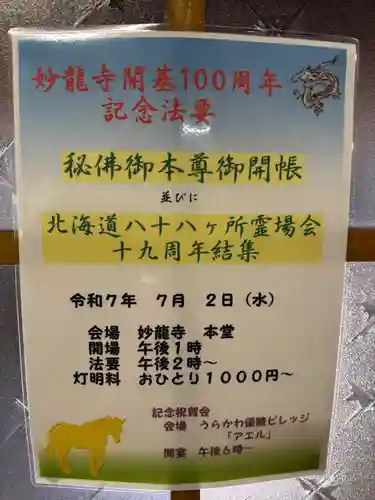 妙龍寺開基100周年
記念法要
秘佛御本尊御開帳
並びに
北海道八十八ヶ所霊場会
十九周年結集
令和7年 7月 2日（水）
会場 妙龍寺 本堂
開場 午後1時
法要 午後2時～
灯明料 おひとり1000円～
記念祝賀会
会場 うらかわ優駿ビレッジ
「アエル」
開宴 午後6時～